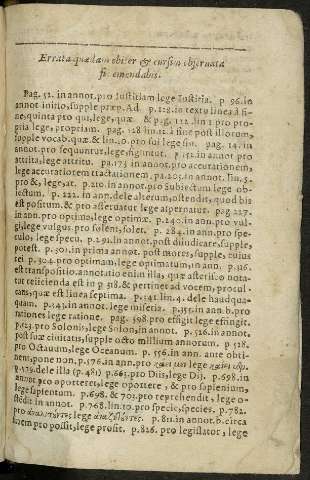 Errata quædam obiter & cursim obseruata
sic emendabis.
Pag. 52. in annot. pro Iustitiam lege Iustitia. p. 96. in
annot initio, supple præp. Ad p. 128. in textu linea à fi-
ne, quinta pro qui, lege, quæ & pag. 122. lin 1 pro pro-
pria lege, propriam. pag. 128 lin. 11 à fine post illorum,
supple vocab. quæ & lin. 10. pro sui lege sin. pag. 14. in
annot. pro sequuntur, lege, sequitur. p. 152. in annot pro
attrita, lege, attritu. pa. 173 in annot. pro accurationem,
lege accuratiorem tractationem. pa. 205. in annot. lin. 5.
pro &, lege, at. p. 210. in annot. pro Subiectum lege ob-
iectum. p. 222. in ann. dele alterum, ostendit, quod bis
est positum, & pro asseruatur lege aspernatur. pag 227.
in ann. pro optimo, lege optimæ p. 240. in ann. pro vul-
gi, lege vulgus pro solent, solet. p. 284. in ann. pro spe-
culo, lege specu. p. 291. in annot. post diiudicare, supple,
potest. p. 301. in prima annot. post mortes, supple, cuius
rei p. 304. pro optimam, lege optimatum, in ann. p. 316.
est transpositio annotatio enim illa, quæ asterisco nota-
tur reiicienda est in p 318. & pertinet ad vocem, procul-
cans, quæ est linea septima. p. 341. lin. 4. dele haudqua-
quam. p. 343. in annot. lege miseria. p. 351. in ann. b. pro
rationes lege ratione. pag. 598. pro effigit lege effingit.
p. 523. pro Solonis, lege Solon, in annot. p. 526. in annot.
post suæ ciuitatis, supple octo millium annorum. p. 528.
pro Octauum, lege Oceanum. p. 556. in ann. ante obti-
nent, pone non. p. 576. in ann. pro
p. 579. dele illa (p. 481) p. 663. pro Diis, lege Dij. p. 698. in
annot. pro oporteret, lege oportere, & pro sapienium,
lege sapientum. p. 698. & 703. pro reprehendit, lege o-
stēdit in annot. p. 768. lin. 10. pro specie, species. p. 782.
pro lege p. 811. in annot. b. circa
finem pro possit, lege prosit. p. 826. pro legislator, lege